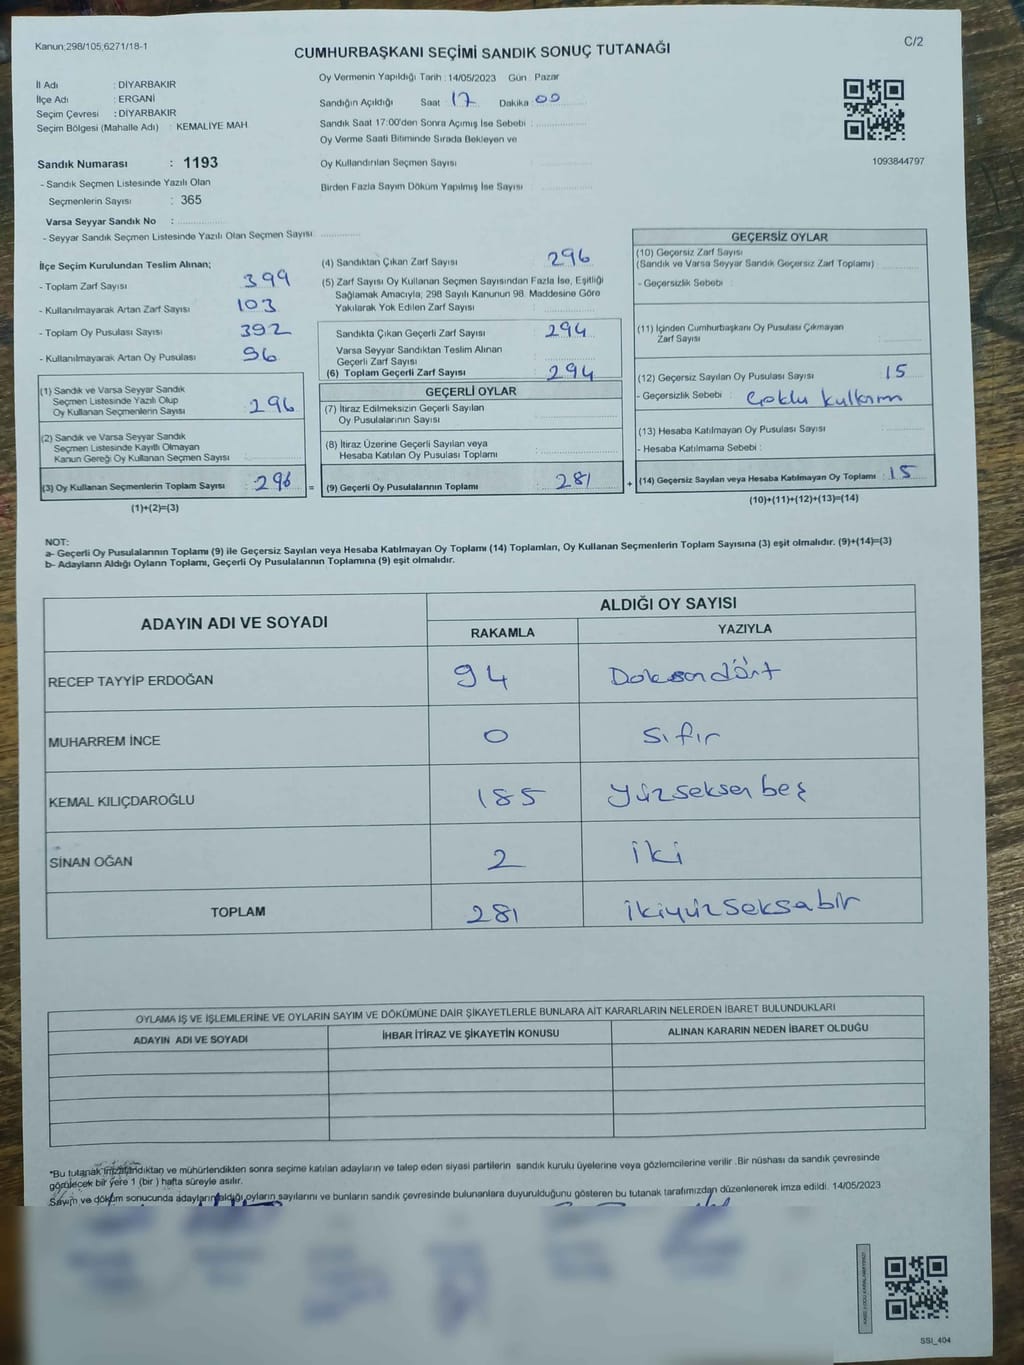 Kanun;298/105,6271/18-1
C/2
CUMHURBAŞKANI SEÇİMİ SANDIK SONUÇ TUTANAĞI
İl Adı : DİYARBAKIR
İlçe Adı : ERGANİ
Seçim Çevresi : DİYARBAKIR
Seçim Bölgesi (Mahalle Adı) : KEMALİYE MAH
Oy Vermenin Yapıldığı Tarih : 14/05/2023 Gün : Pazar
Sandığın Açıldığı Saat 17 Dakika 00
Sandık Saat 17:00'den Sonra Açımış İse Sebebi :
Oy Verme Saati Bitiminde Sırada Bekleyen ve
Oy Kullandırılan Seçmen Sayısı
Birden Fazla Sayım Döküm Yapılmış İse Sayısı
1093844797
Sandık Numarası : 1193
- Sandık Seçmen Listesinde Yazılı Olan
Seçmenlerin Sayısı : 365
Varsa Seyyar Sandık No :
- Seyyar Sandık Seçmen Listesinde Yazılı Olan Seçmen Sayısı:
İlçe Seçim Kurulundan Teslim Alınan;
- Toplam Zarf Sayısı 399
- Kullanılmayarak Artan Zarf Sayısı 103
- Toplam Oy Pusulası Sayısı 392
- Kullanılmayarak Artan Oy Pusulası 96
(1) Sandık ve Varsa Seyyar Sandık
Seçmen Listesinde Yazılı Olup
Oy Kullanan Seçmenlerin Sayısı 296
(2) Sandık ve Varsa Seyyar Sandık
Seçmen Listesinde Kayıtlı Olmayan
Kanun Gereği Oy Kullanan Seçmen Sayısı
(3) Oy Kullanan Seçmenlerin Toplam Sayısı 296 =
(1)+(2)=(3)
(4) Sandıktan Çıkan Zarf Sayısı 296
(5) Zarf Sayısı Oy Kullanan Seçmen Sayısından Fazla İse, Eşitliği
Sağlamak Amacıyla; 298 Sayılı Kanunun 98. Maddesine Göre
Yakılarak Yok Edilen Zarf Sayısı
Sandıkta Çıkan Geçerli Zarf Sayısı 294
Varsa Seyyar Sandıktan Teslim Alınan
Geçerli Zarf Sayısı
(6) Toplam Geçerli Zarf Sayısı 294
GEÇERLİ OYLAR
(7) İtiraz Edilmeksizin Geçerli Sayılan
Oy Pusulalarının Sayısı
(8) İtiraz Üzerine Geçerli Sayılan veya
Hesaba Katılan Oy Pusulası Toplamı
(9) Geçerli Oy Pusulalarının Toplamı 281 +
GEÇERSİZ OYLAR
(10) Geçersiz Zarf Sayısı
(Sandık ve Varsa Seyyar Sandık Geçersiz Zarf Toplamı)
- Geçersizlik Sebebi :
(11) İçinden Cumhurbaşkanı Oy Pusulası Çıkmayan
Zarf Sayısı :
(12) Geçersiz Sayılan Oy Pusulası Sayısı 15
- Geçersizlik Sebebi : Çoklu kullanım
(13) Hesaba Katılmayan Oy Pusulası Sayısı
- Hesaba Katılmama Sebebi :
(14) Geçersiz Sayılan veya Hesaba Katılmayan Oy Toplamı : 15
(10)+(11)+(12)+(13)=(14)
NOT:
a- Geçerli Oy Pusulalarının Toplamı (9) ile Geçersiz Sayılan veya Hesaba Katılmayan Oy Toplamı (14) Toplamları, Oy Kullanan Seçmenlerin Toplam Sayısına (3) eşit olmalıdır. (9)+(14)=(3)
b- Adayların Aldığı Oyların Toplamı, Geçerli Oy Pusulalarının Toplamına (9) eşit olmalıdır.
ADAYIN ADI VE SOYADI
ALDIĞI OY SAYISI
RAKAMLA YAZIYLA
RECEP TAYYİP ERDOĞAN 94 Doksandört
MUHARREM İNCE 0 Sıfır
KEMAL KILIÇDAROĞLU 185 Yüzseksenbeş
SİNAN OĞAN 2 iki
TOPLAM 281 ikiyüzseksabir
OYLAMA İŞ VE İŞLEMLERİNE VE OYLARIN SAYIM VE DÖKÜMÜNE DAİR ŞİKAYETLERLE BUNLARA AİT KARARLARIN NELERDEN İBARET BULUNDUKLARI
ADAYIN ADI VE SOYADI İHBAR İTİRAZ VE ŞİKAYETİN KONUSU ALINAN KARARIN NEDEN İBARET OLDUĞU
*Bu tutanak imzalandıktan ve mühürlendikten sonra seçime katılan adayların ve talep eden siyasi partilerin sandık kurulu üyelerine veya gözlemcilerine verilir .Bir nüshası da sandık çevresinde
görülecek bir yere 1 (bir) hafta süreyle asılır.
Sayım ve döküm sonucunda adayların aldığı oyların sayılarını ve bunların sandık çevresinde bulunanlara duyurulduğunu gösteren bu tutanak tarafımızdan düzenlenerek imza edildi. 14/05/2023
SSI_404